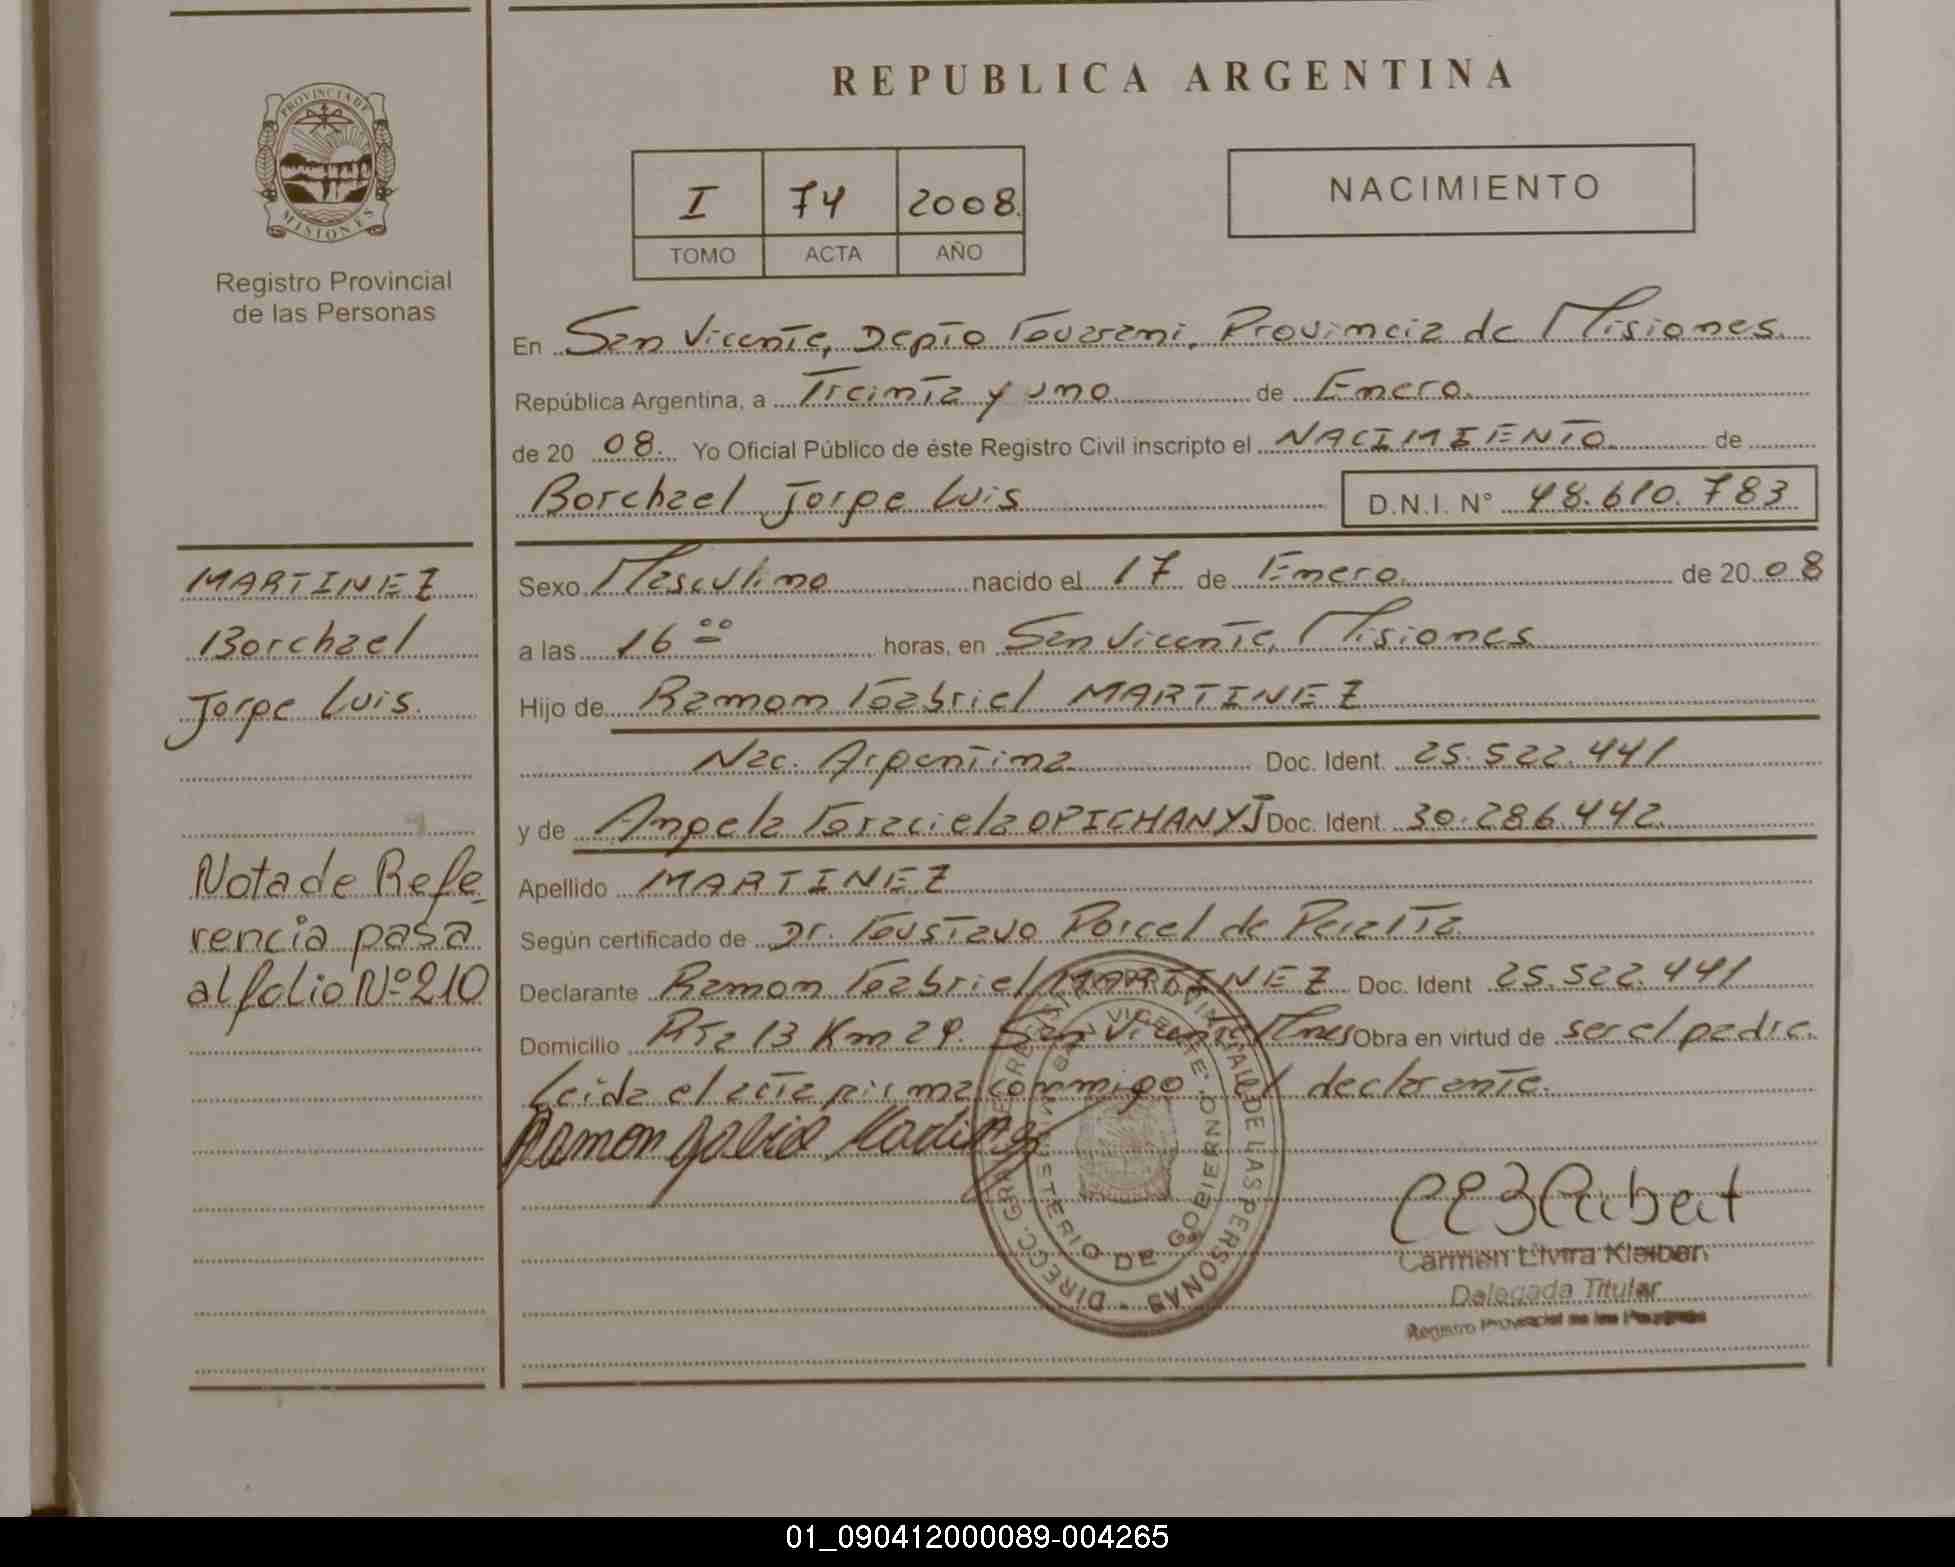 REPUBLICA ARGENTINA
PROVINCIA DE
MISIONES
Registro Provincial
de las Personas
I 74 2008
TOMO ACTA AÑO
NACIMIENTO
En San Vicente, Depto Guarani, Provincia de Misiones
República Argentina, a Treinta y uno de Enero
de 20 08. Yo Oficial Público de éste Registro Civil inscripto el NACIMIENTO de
Borchael Jorge Luis D.N.I. N° 48.610.783
MARTINEZ
Borchael
Jorge Luis.
Nota de Refe-
rencia pasa
al folio Nº 210
Sexo Masculino nacido el 17 de Enero de 20 08
a las 16 00 horas, en San Vicente, Misiones
Hijo de Ramon Gabriel MARTINEZ
Nac. Argentina Doc. Ident. 25.522.441
y de Angela Graciela OPICHANYJ Doc. Ident. 30.286.442
Apellido MARTINEZ
Según certificado de Dr. Gustavo Porcel de Peralta
Declarante Ramon Gabriel MARTINEZ Doc. Ident 25.522.441
Domicilio Rta 13 Km 29. San Vicente, Mnes Obra en virtud de ser el padre.
Leida el acta firma conmigo el declarante.
Ramon Gabriel Martinez
MINISTERIO DE GOBIERNO
Carmen Elvira Kleiber
Delegada Titular
Registro Provincial de las Personas
01_090412000089-004265